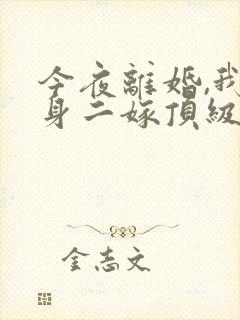 今夜離婚,我
身二嫁頂級
金志文